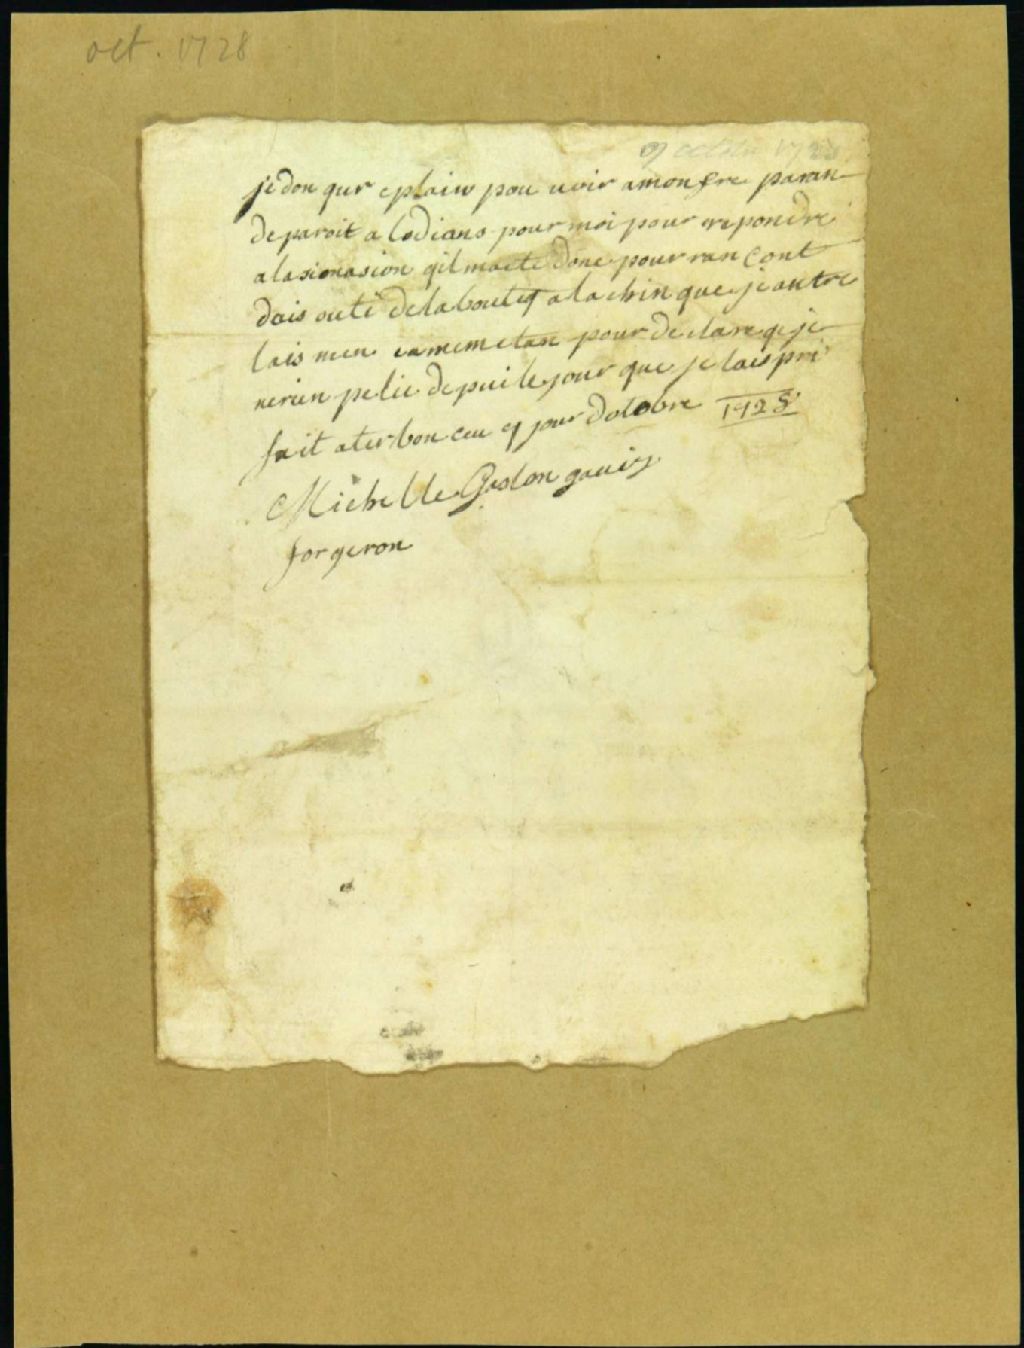 oct. 1728
9 octobre 1728
je don qur e plaiw pou uoir a mon frre paran
de paroit a lodians pour moi pour repondre
a lasionasion qil ma ete done pour ran cont
dais outi de la bouteq a la chin que je autre
lais men en mem etan pour de clare qe je
ne rien pe lie depui le jour que je lais pri
fait a ter bon ceu 9 jour dotobre 1728
Michelle Gaslon gauis
forgeron